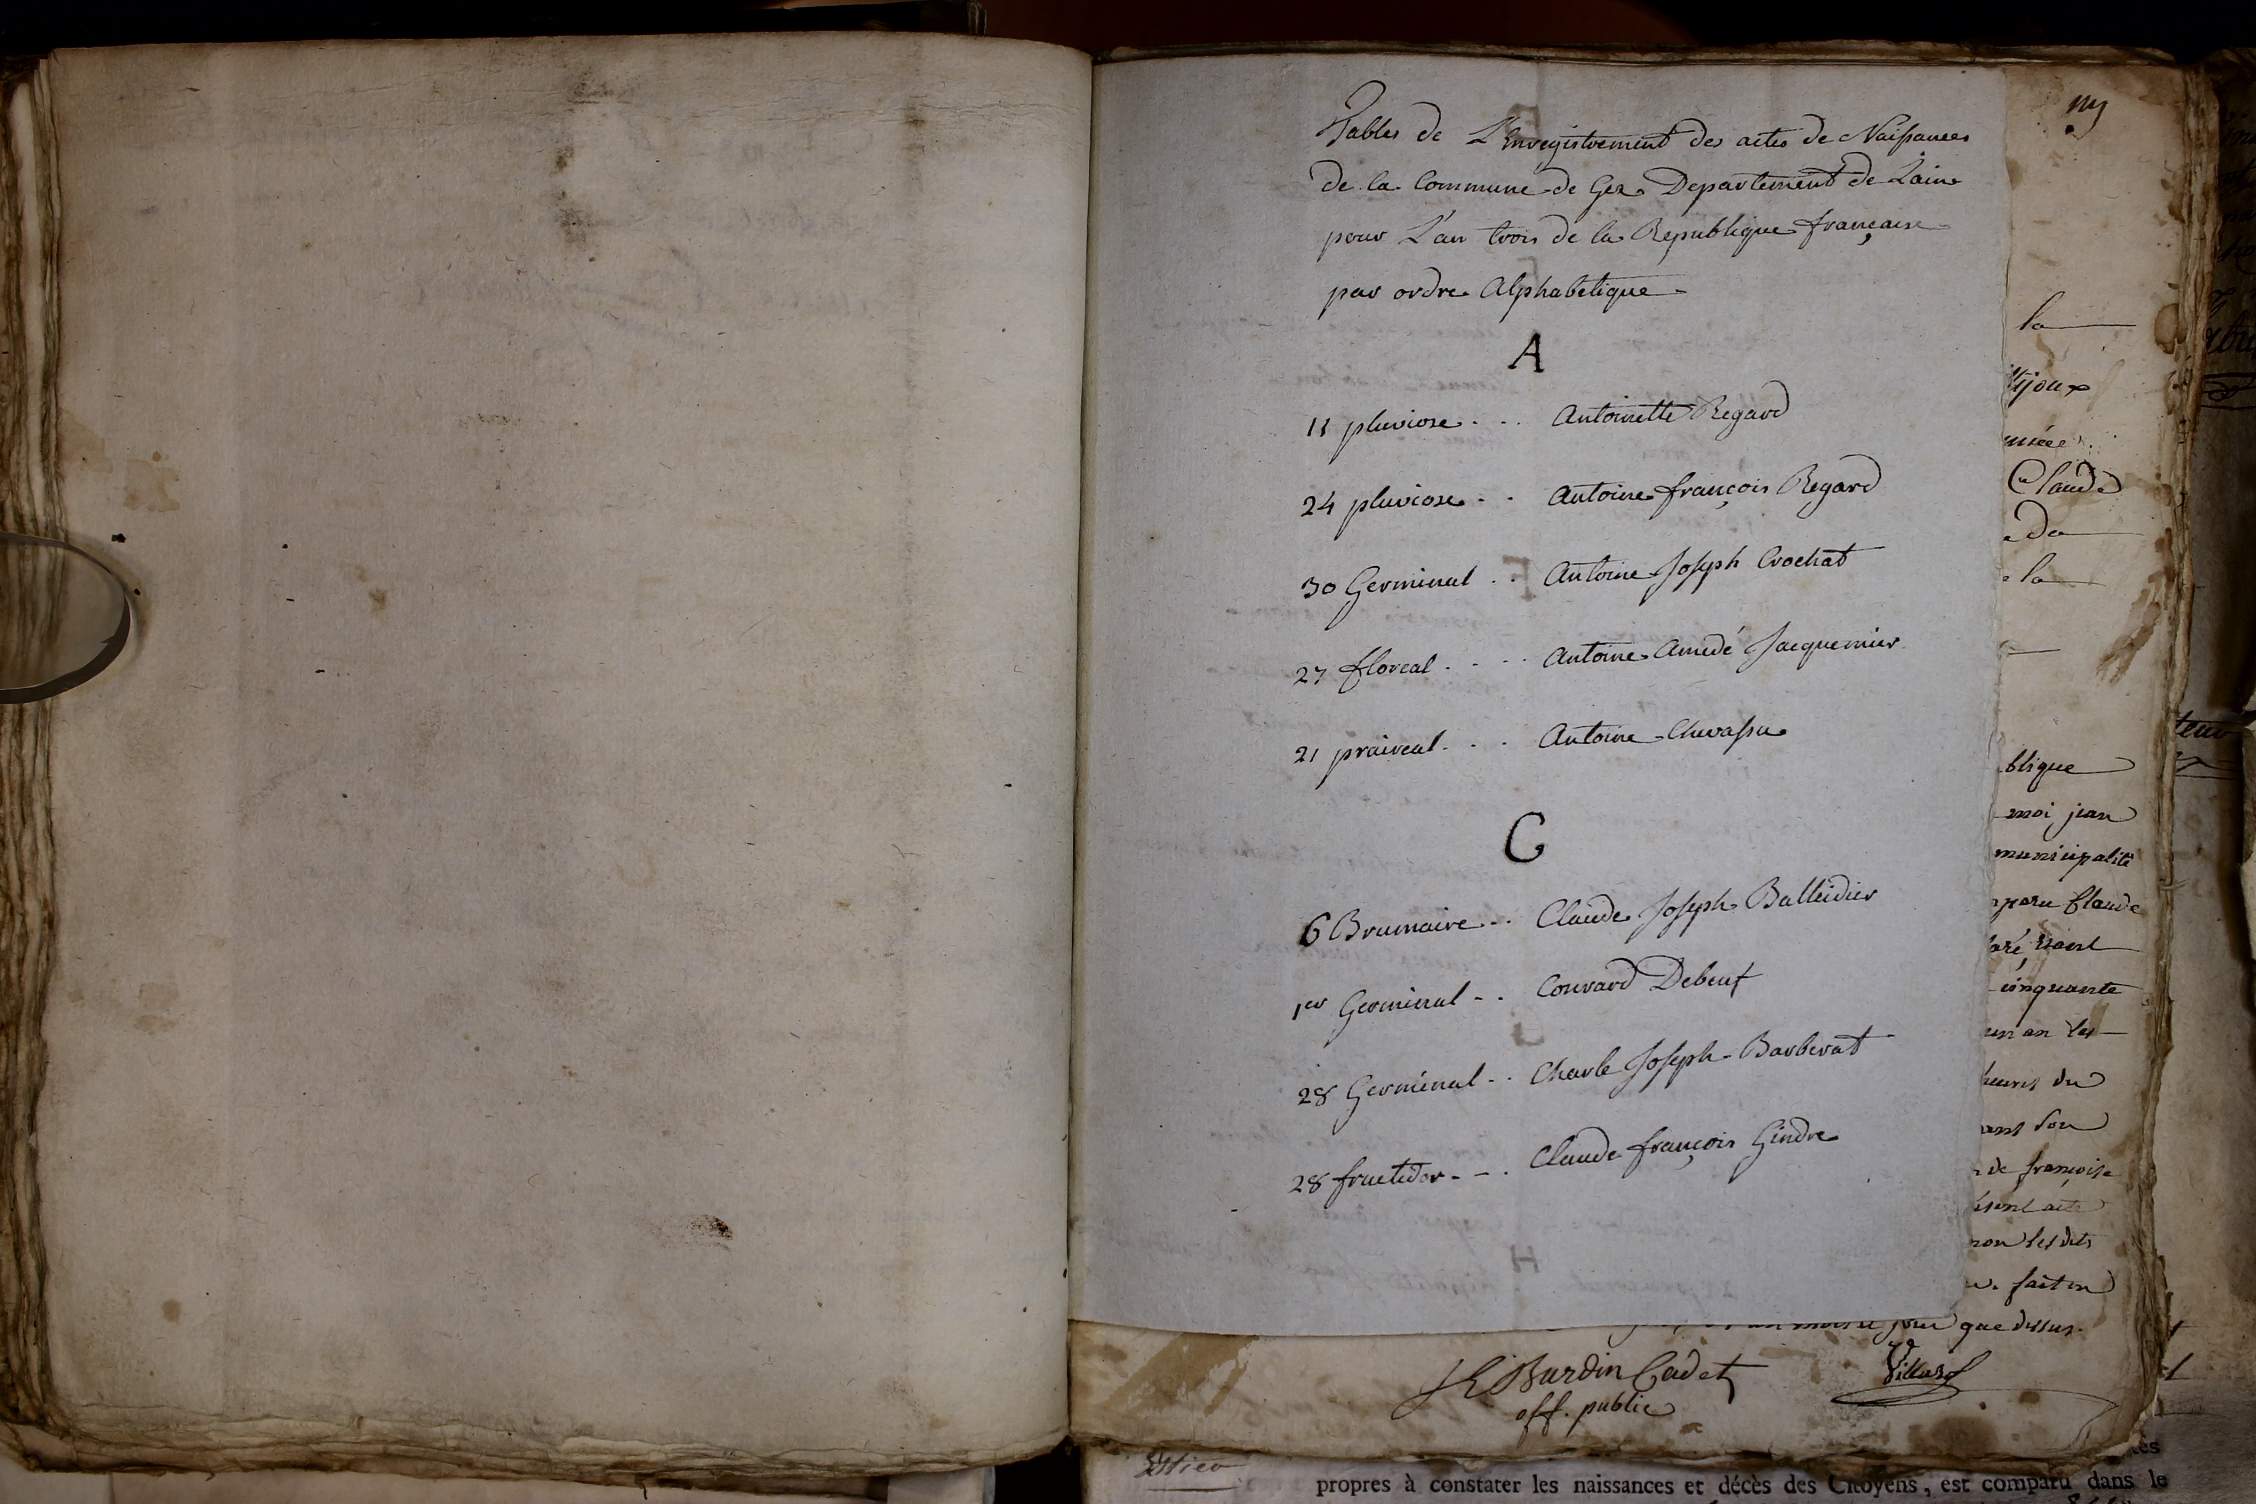 Tables de L'Enregistrement des actes de Naissances
de la Commune de Gex Departement de Lain
pour L'an trois de la Republique francaise
par ordre Alphabetique
A
11 pluviose . . . Antoinette Regard
24 pluviose . . Antoine françois Regard
30 Germinal . . Antoine Joseph Crochat
27 floreal . . . . Antoine Amédé Jacquemier
21 praireal . . . Antoine Chevassu
C
6 Brumaire . . . Claude Joseph Balleidier
1er Germinal - . Conrard Debeuf
28 Germinal - . Charle Joseph Barberat
28 fructidor - - . Claude françois Gindre
la
Claude
de
la
blique
moi jean
municipalité
paru Claude
cinquante
un an les
heures du
son
de françoise
acte
non lesdits
fait en
jour que dessus.
Burdin Cadet
off. public
propres à constater les naissances et décès des Citoyens, est comparu dans le